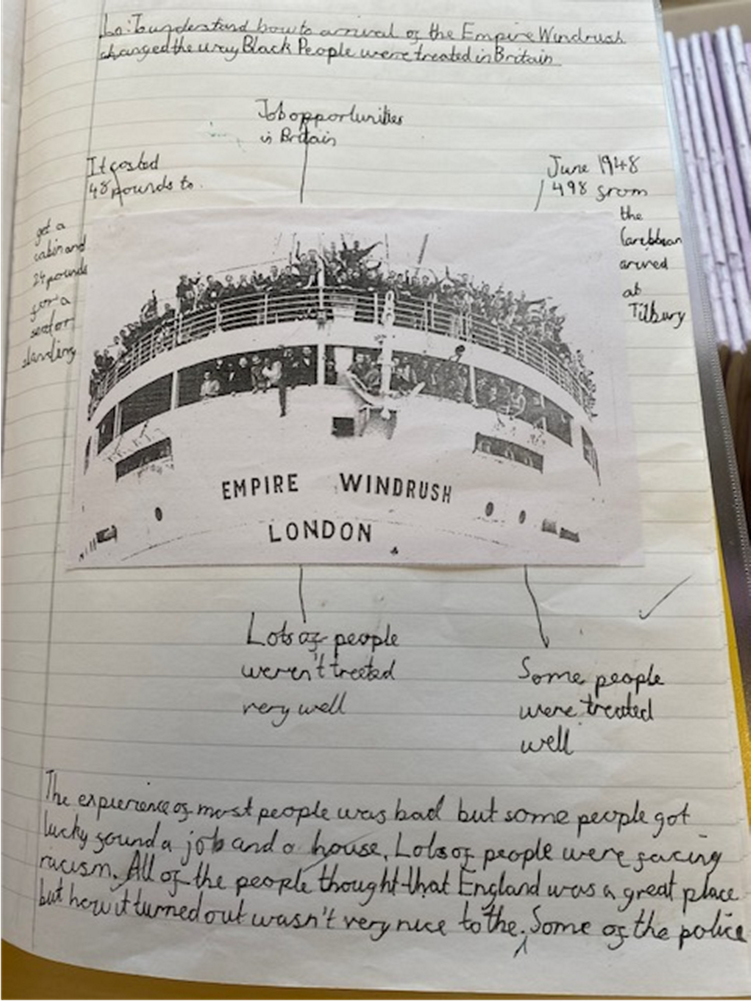 Lo: To understand how to arrival of the Empire Windrush
changed the way Black People were treated in Britain
Job opportunities
in Britain
It costed
48 pounds to
get a
cabin and
24 pounds
for a
seat or
standing
June 1948
498 from
the
Caribbean
arived
at
Tilbury
EMPIRE WINDRUSH
LONDON
Lots of people
weren't treated
very well
Some people
were treated
well
The expierience of most people was bad but some people got
lucky found a job and a house. Lots of people were facing
racism. All of the people thought that England was a great place
but how it turned out wasn't very nice to the. Some of the police